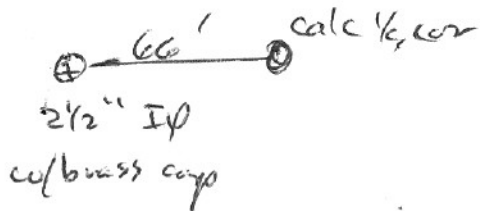 66' calc 1/4 cor
2 1/2" IP
w/brass cap